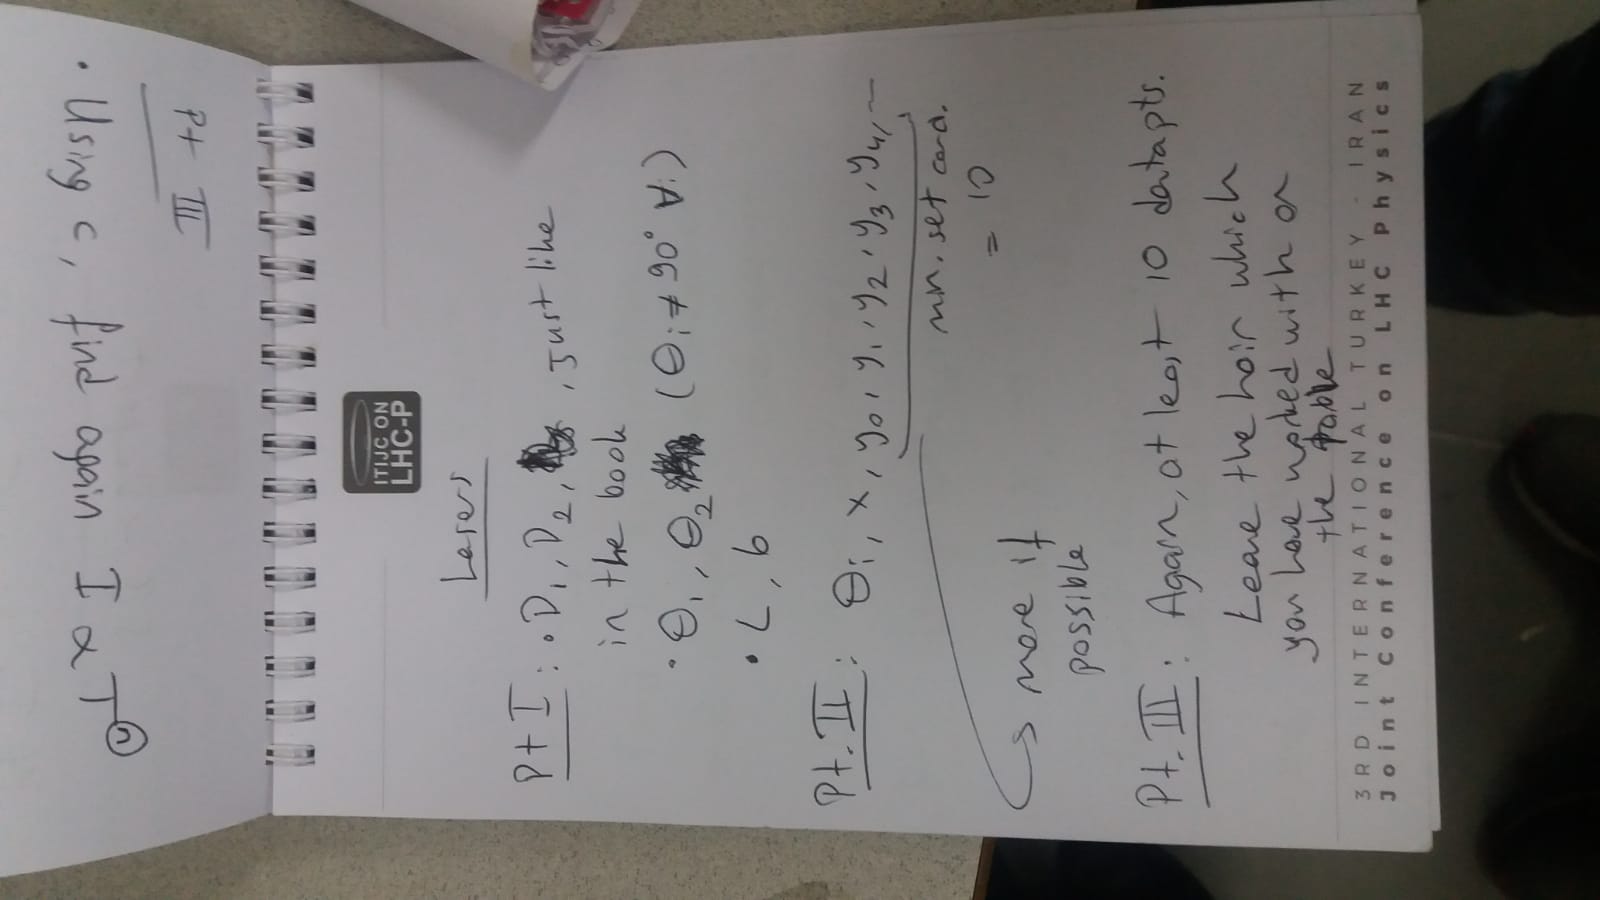 Pt III
• Using c, find again I ∝ T
ITIJC ON
LHC-P
Lasers
Pt I: • D₁, D₂, Just like
in the book
• θ₁, θ₂ (θᵢ ≠ 90° ∀i)
• L, b
Pt. II: θᵢ, x, y₀, y₁, y₂, y₃, y₄, ~
mn. set card.
= 10
↪ more if
possible
Pt. III: Again, at least 10 datapts.
Leave the hair which
you have worked with on
the table
3RD INTERNATIONAL TURKEY - IRAN
Joint Conference on LHC Physics